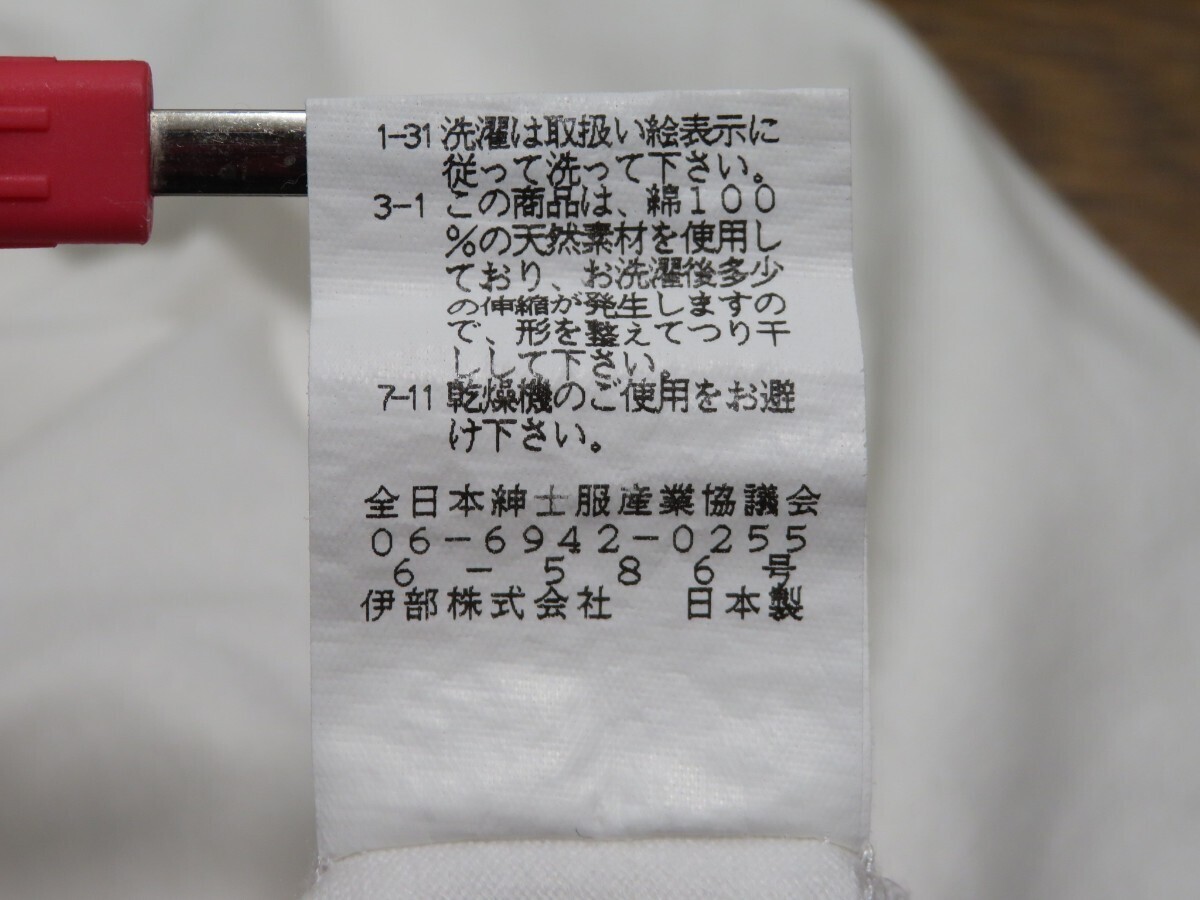 1-31 洗濯は取扱い絵表示に
従って洗って下さい。
3-1 この商品は、綿100
%の天然素材を使用し
ており、お洗濯後多少
の伸縮が発生しますの
で、形を整えてつり干
しして下さい。
7-11 乾燥機のご使用をお避
け下さい。
全日本紳士服産業協議会
06-6942-0255
6-586号
伊部株式会社 日本製